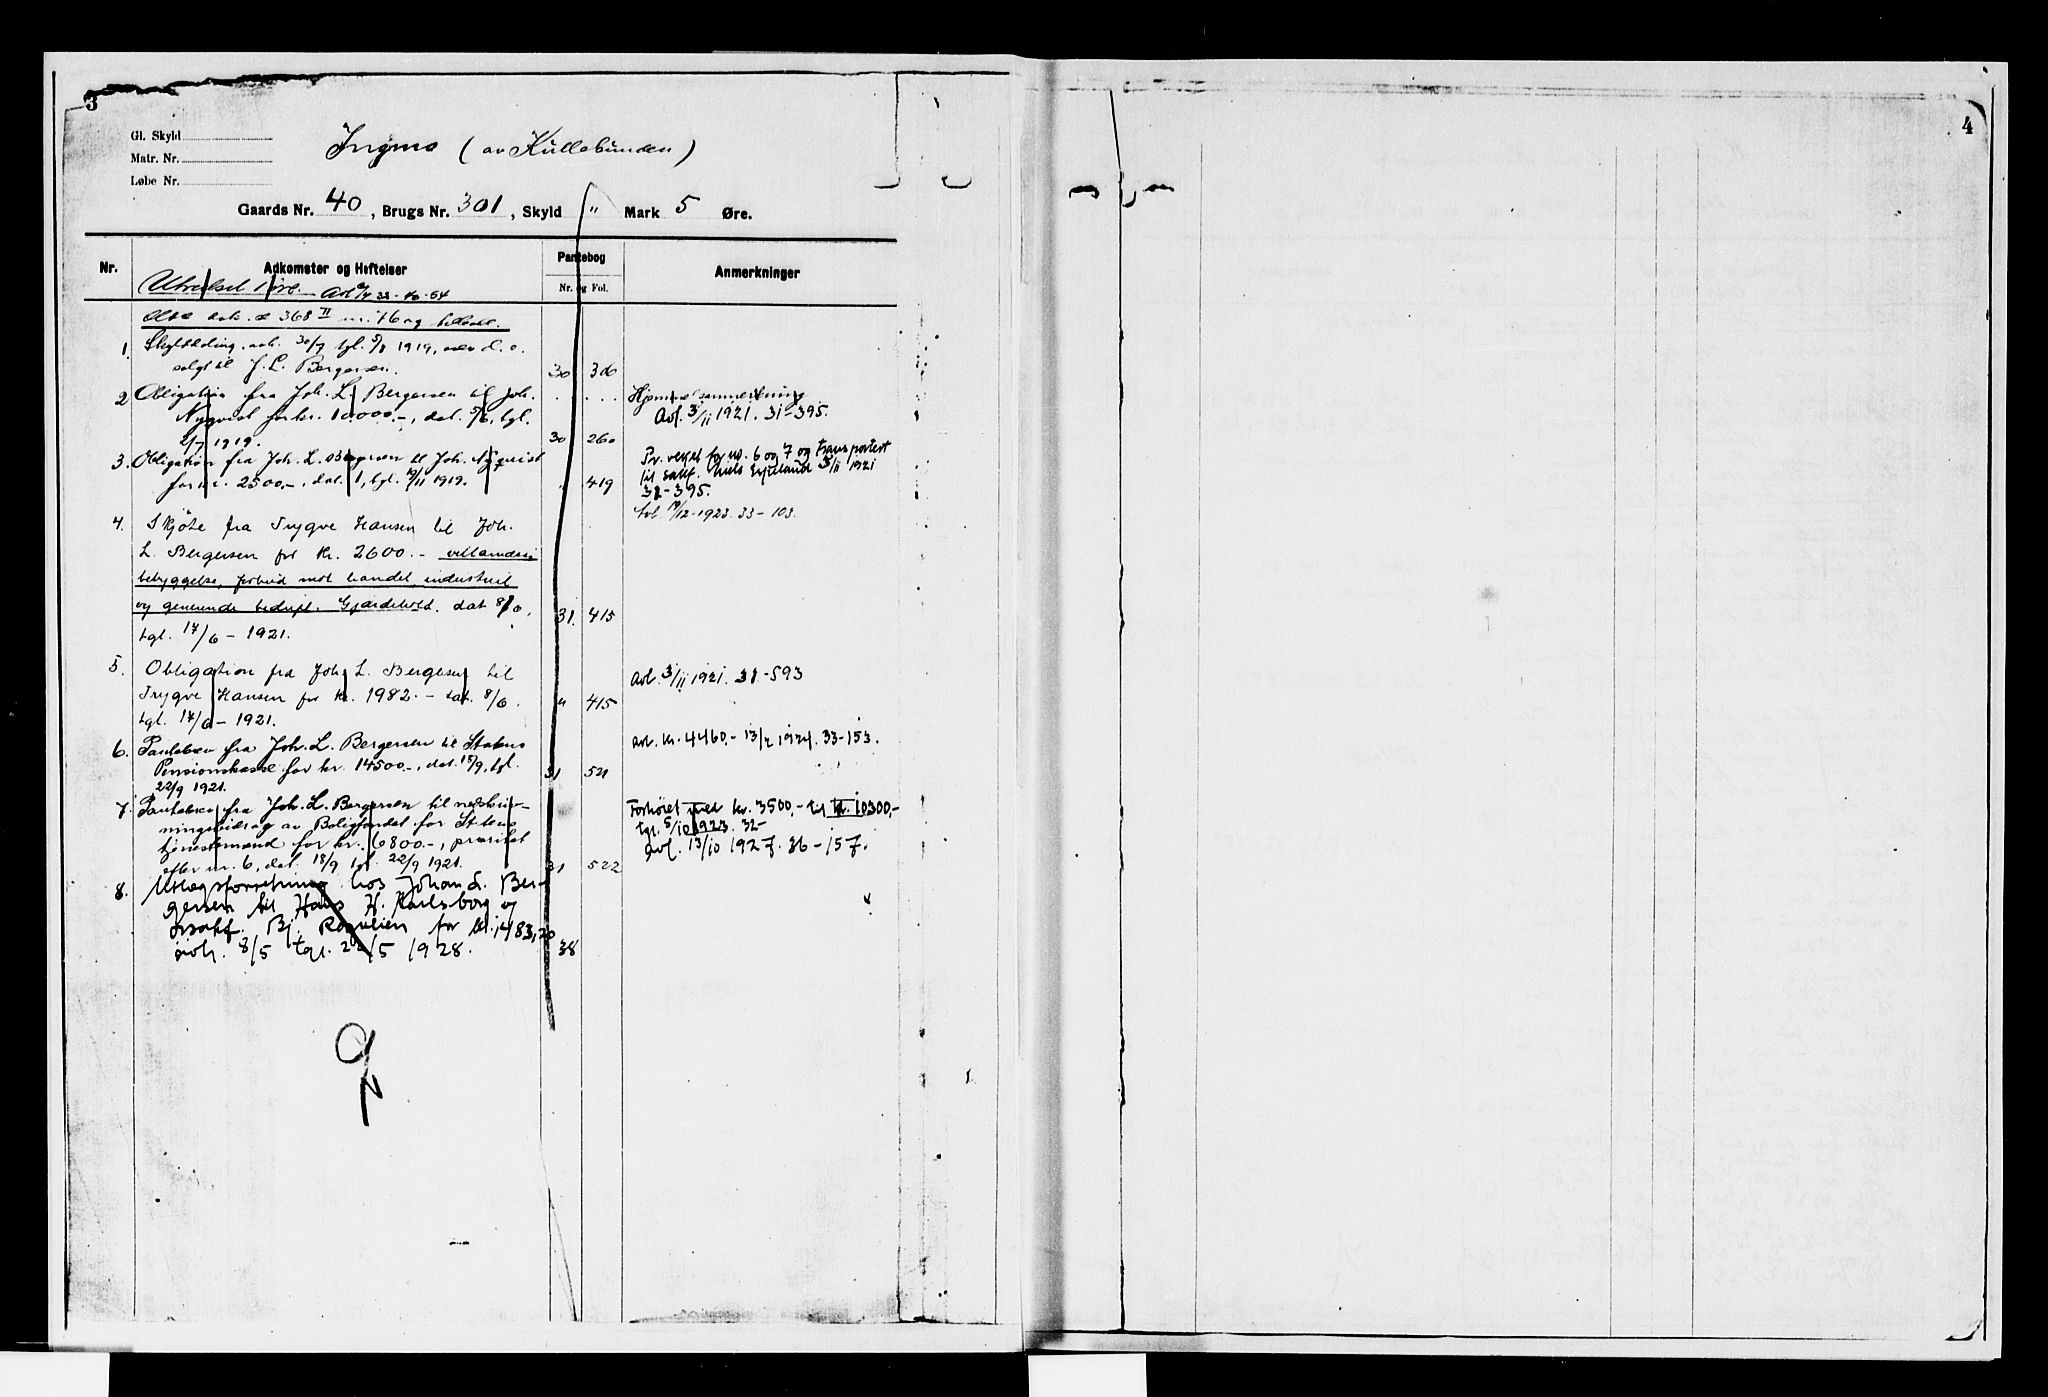 3
Gl. Skyld
Matr. Nr.
Løbe Nr.
Ingmo (av Kullebunden)
Gaards Nr. 40, Brugs Nr. 301, Skyld " Mark 5 Øre.
Nr. Adkomster og Heftelser Pantebog Anmerkninger
Nr. og Fol.
Avl 22-10-54
368 II
1. Skylddeling avh. 30/7 tgl. 1919,
solgt til J. L. Bergersen. 30 306
2 Obligation fra Joh. L. Bergersen til Joh.
Nyqvist for kr. 10000.-, dat. 5/6, tgl.
2/7 1919. 30 260
Hjemmelsanmerkning
Avl. 3/11 1921. 31-395.
3. Obligation fra Joh. L. Bergersen til Joh. Nyqvist
for kr. 2500.-, dat. 1, tgl. 12/11 1919. " 419
Pr. veket for no. 6 og 7 og transportert
til sakf. Niels Erfjeland 3/11 1921
31-395.
Avl. 12-1923. 33-103.
4. Skjøte fra Trygve Hansen til Joh.
L. Bergersen for kr. 2600.- villamæssig
bebyggelse, forbud mot handel, industriel
og generende bedrift. Gjærdehold. dat 8/6,
tgl. 14/6-1921. 31. 415
5. Obligation fra Joh. L. Bergersen til
Trygve Hansen for kr. 1982.- dat. 8/6.
tgl. 14/6-1921. " 415
Avl. 3/11 1921. 31-593
6. Pantebrev fra Joh. L. Bergersen til Statens
Pensionskasse for kr. 14500.-, dat. 15/9, tgl.
22/9 1921. 31 521
Avl. kr. 4460.- 13/2 1924. 33-153.
7. Pantebrev fra Joh. L. Bergersen til nedskriv-
ningsbidrag av Boligfondet for Statens
tjenestemænd for kr. 6800.-, prioritet
efter nr. 6, dat. 18/9 tgl. 22/9 1921. 31 522
Forhøiet med kr. 3500,- til kr. 10300,-
tgl. 5/10 1923. 32-
Avl. 13/10 1927. 36-157.
8. Utlægsforretning hos Johan L. Ber-
gersen til Hans H. Karlsborg og
o.r.sakf. Bj. Rognlien for kr. 1483,20
avh. 8/5 tgl. 22/5 1928. 38
4